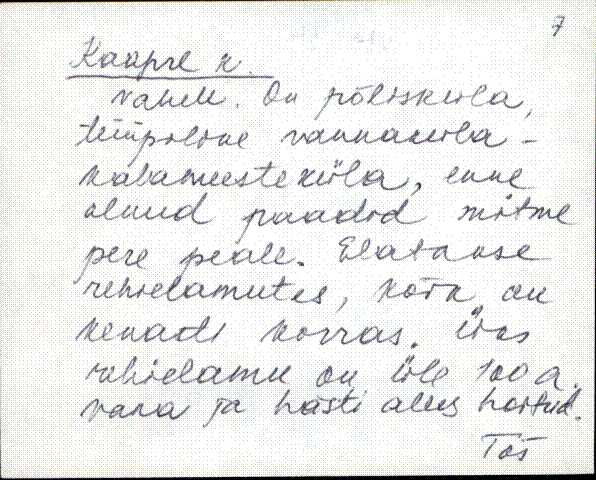 7
Kaapre k.
vahele. On põlisküla,
tüüpiline rannaküla -
kalameesteküla, enne
olnud paadid mitme
pere peale. Elatakse
rehielamutes, kõik on
kenasti korras. Üks
rehielamu on üle 100 a.
vana ja hästi alles hoitud.